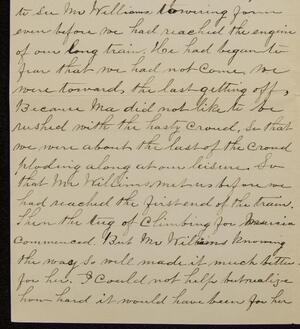 to see Mr Williams towering form
even before we had reached the engine
of our long train. He had began to
fear that we had not come. We
were toward, the last getting off,
Because Ma did not like to be
rushed with the hasty crowd, So that
we were about the last of the Crowd
plodding along at our leisure. So
that Mr Williams met us before we
had reached the first end of the train.
Then the tug of Climbing for Marcia
commenced. But Mr Williams knowing
the way so well made it much better
for her. I could not help but realize
how hard it would have been for her